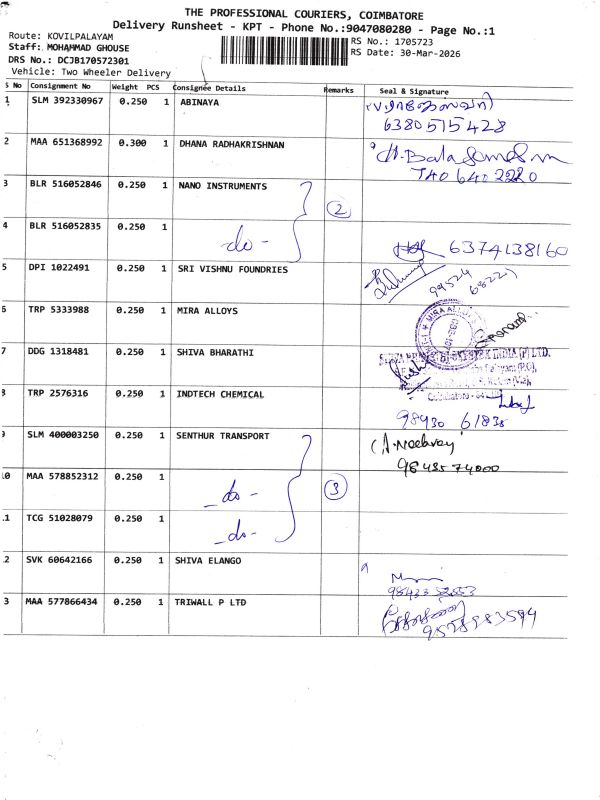 THE PROFESSIONAL COURIERS, COIMBATORE
Delivery Runsheet - KPT - Phone No.:9047080280 - Page No.:1
Route: KOVILPALAYAM
Staff: MOHAMMAD GHOUSE
DRS No.: DCJB170572301
Vehicle: Two Wheeler Delivery
RS No.: 1705723
RS Date: 30-Mar-2026
S No Consignment No Weight PCS Consignee Details Remarks Seal & Signature
1 SLM 392330967 0.250 1 ABINAYA
6380515428
2 MAA 651368992 0.300 1 DHANA RADHAKRISHNAN
3 BLR 516052846 0.250 1 NANO INSTRUMENTS 2
4 BLR 516052835 0.250 1 - do -
6374138160
5 DPI 1022491 0.250 1 SRI VISHNU FOUNDRIES
99524
68227
6 TRP 5333988 0.250 1 MIRA ALLOYS
7 DDG 1318481 0.250 1 SHIVA BHARATHI
INDIA (P) LTD.
8 TRP 2576316 0.250 1 INDTECH CHEMICAL
98430 61835
9 SLM 400003250 0.250 1 SENTHUR TRANSPORT
98435 74000
10 MAA 578852312 0.250 1 - do - 3
11 TCG 51028079 0.250 1 - do -
12 SVK 60642166 0.250 1 SHIVA ELANGO
13 MAA 577866434 0.250 1 TRIWALL P LTD
9578983594